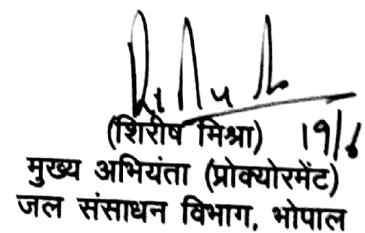 (शिरीष मिश्रा) 19/6
मुख्य अभियंता (प्रोक्योरमेंट)
जल संसाधन विभाग, भोपाल